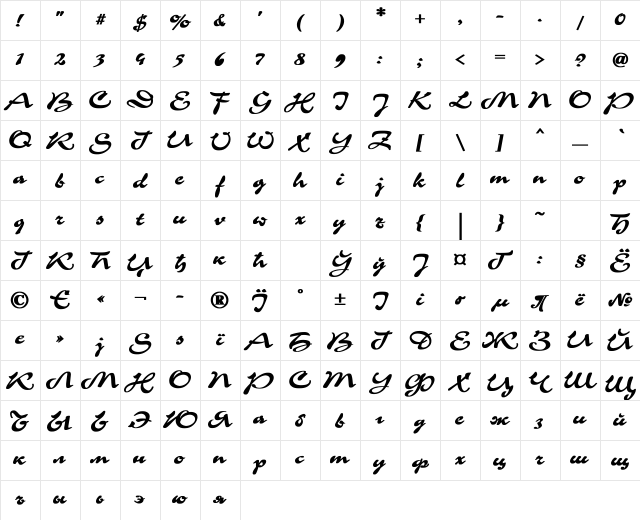 ! " # $ % & ' ( ) * + , - . / 0
1 2 3 4 5 6 7 8 9 : ; < = > ? @
A B C D E F G H I J K L M N O P
Q R S T U V W X Y Z [ \ ] ^ _ `
a b c d e f g h i j k l m n o p
q r s t u v w x y z { | } ~ Ђ
Ѓ Ќ Ћ Џ ђ ќ ћ Ў ў Ј ¤ Ґ ¦ § Ё
© Є « ¬ - ® Ї ° ± І і ґ µ ¶ ё №
є » ј Ѕ ѕ ї А Б В Г Д Е Ж З И Й
К Л М Н О П Р С Т У Ф Х Ц Ч Ш Щ
Ъ Ы Ь Э Ю Я а б в г д е ж з и й
к л м н о п р с т у ф х ц ч ш щ
ъ ы ь э ю я